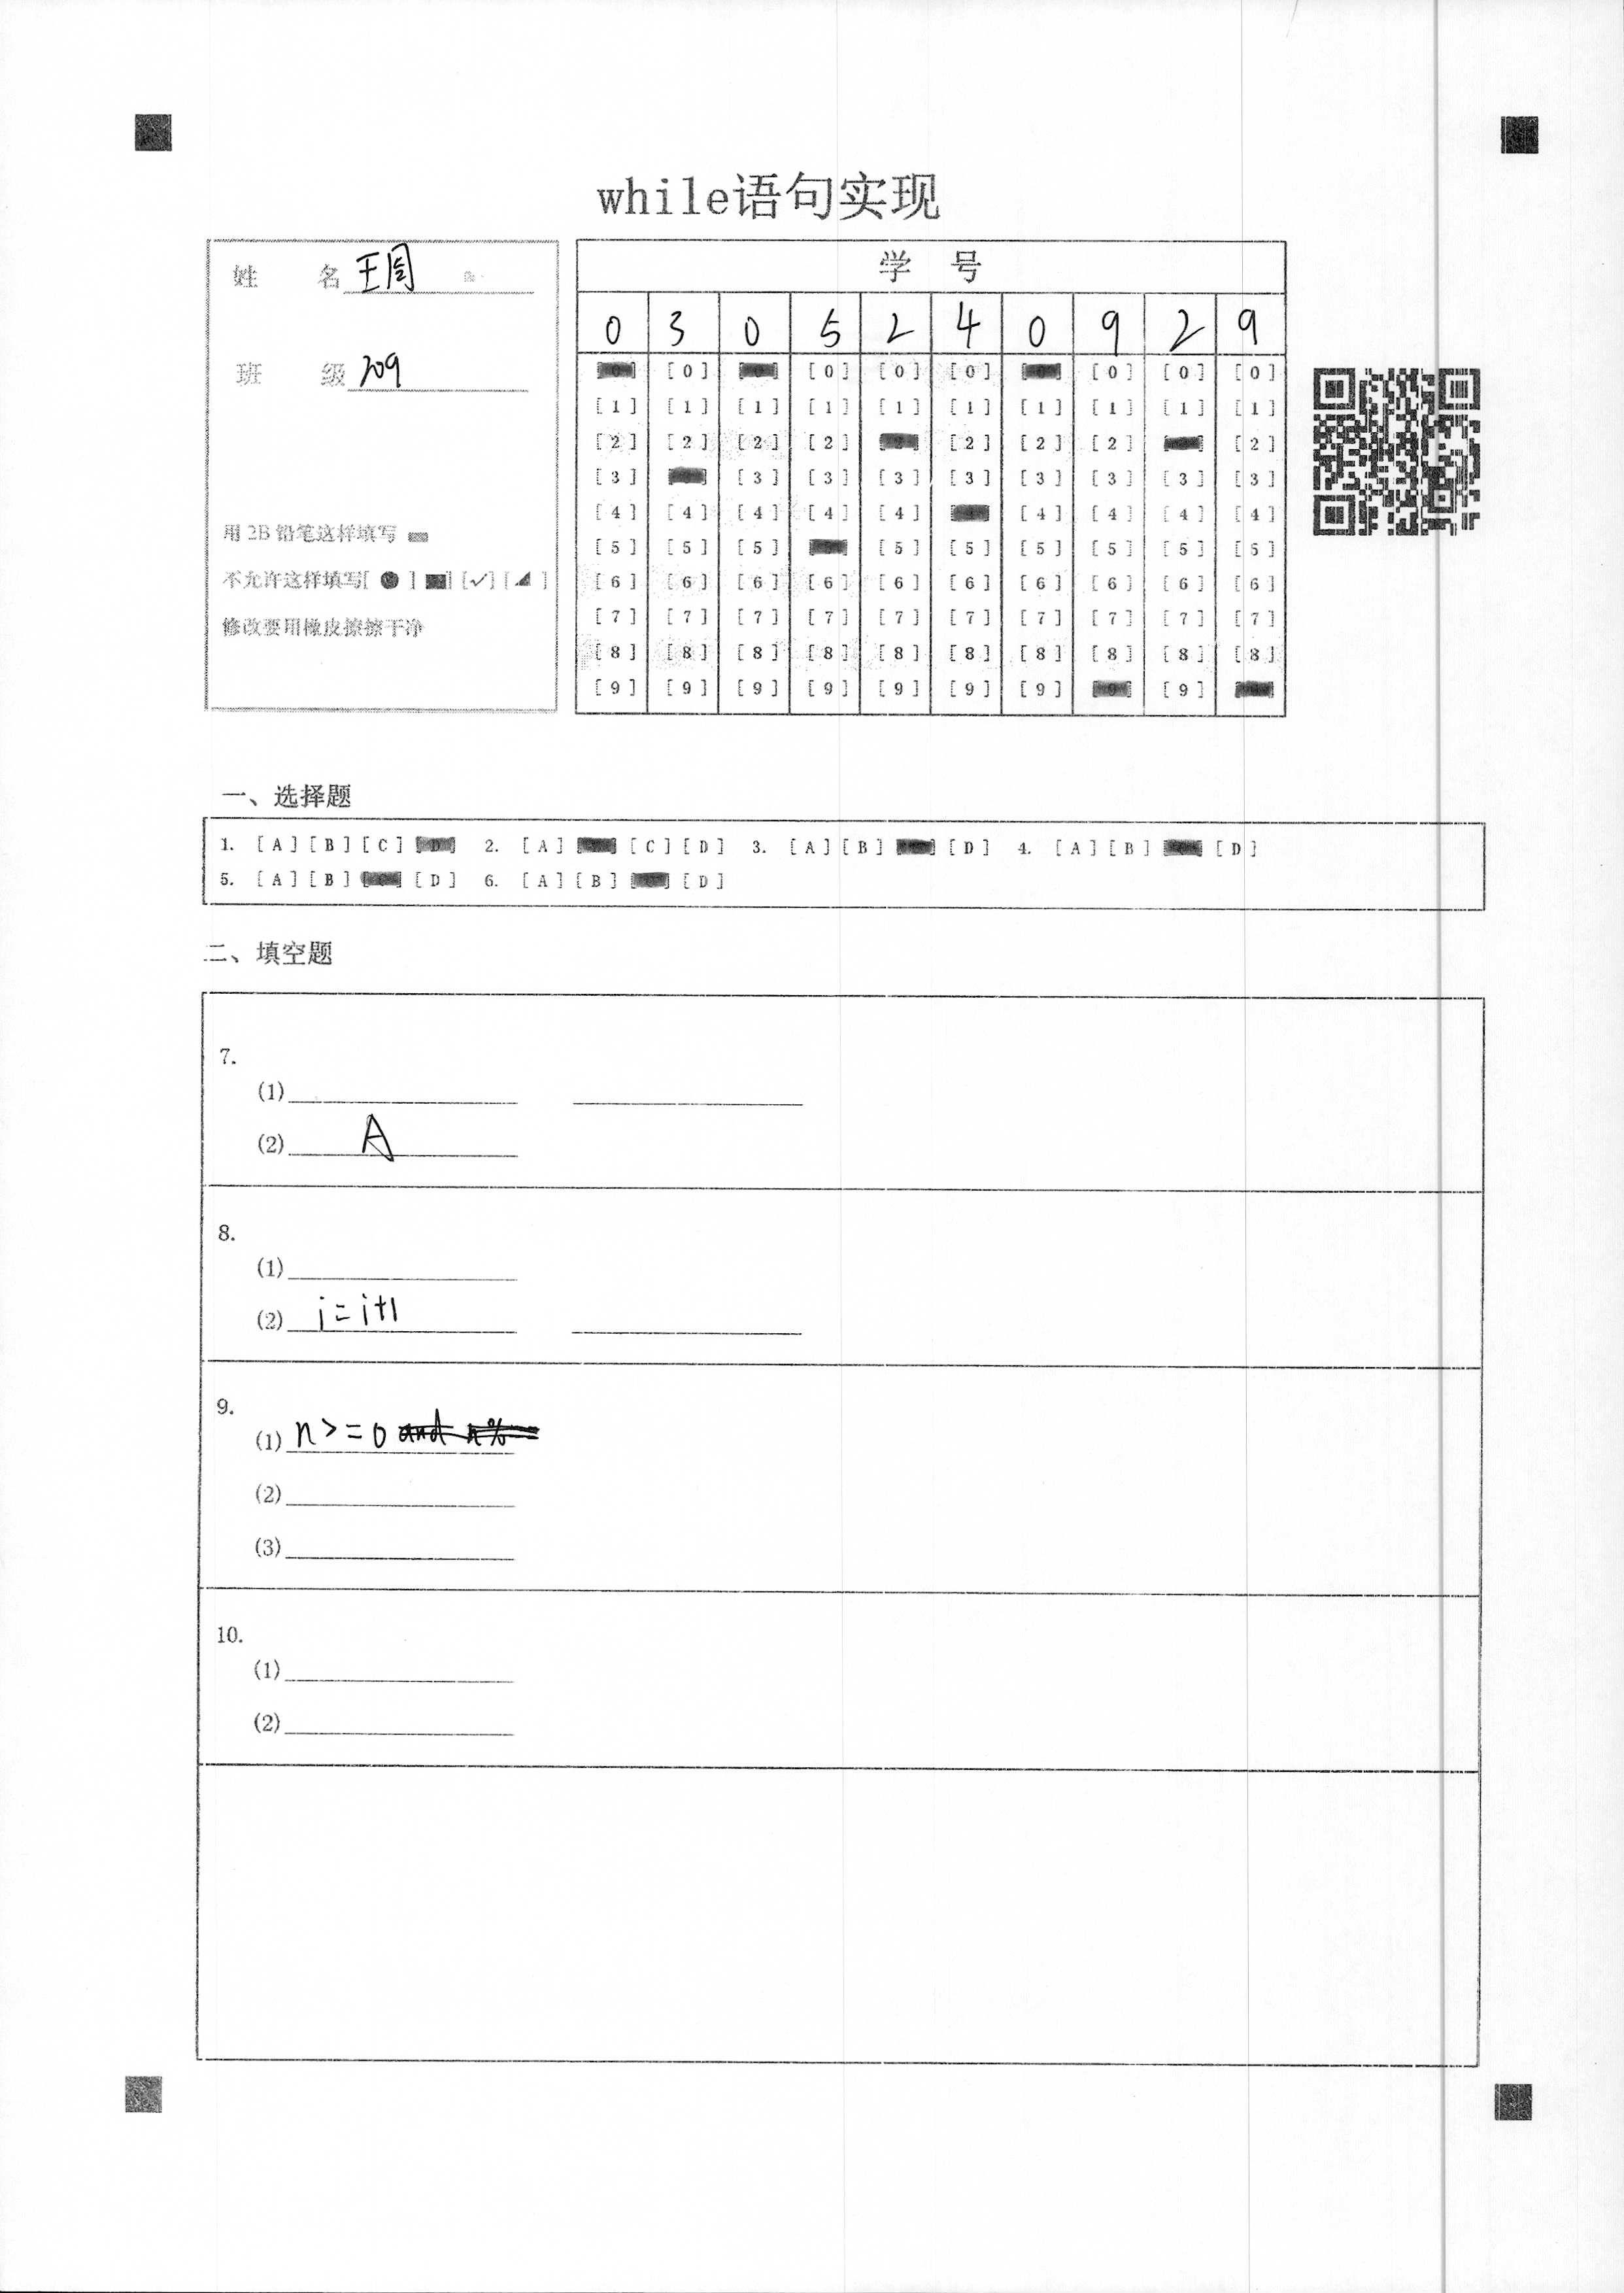 while语句实现
姓 名 王周
班 级 209
用 2B 铅笔这样填写
不允许这样填写[ ● ] [■] [✓] [ ◢ ]
修改要用橡皮擦擦干净
学 号
0 3 0 5 2 4 0 9 2 9
[0] [0] [0] [0] [0] [0] [0] [0] [0] [0]
[1] [1] [1] [1] [1] [1] [1] [1] [1] [1]
[2] [2] [2] [2] [2] [2] [2] [2] [2] [2]
[3] [3] [3] [3] [3] [3] [3] [3] [3] [3]
[4] [4] [4] [4] [4] [4] [4] [4] [4] [4]
[5] [5] [5] [5] [5] [5] [5] [5] [5] [5]
[6] [6] [6] [6] [6] [6] [6] [6] [6] [6]
[7] [7] [7] [7] [7] [7] [7] [7] [7] [7]
[8] [8] [8] [8] [8] [8] [8] [8] [8] [8]
[9] [9] [9] [9] [9] [9] [9] [9] [9] [9]
一、选择题
1. [A] [B] [C] [D] 2. [A] [B] [C] [D] 3. [A] [B] [C] [D] 4. [A] [B] [C] [D]
5. [A] [B] [C] [D] 6. [A] [B] [C] [D]
二、填空题
7.
(1)
(2) A
8.
(1)
(2) i=i+1
9.
(1) n>=0 and n%
(2)
(3)
10.
(1)
(2)